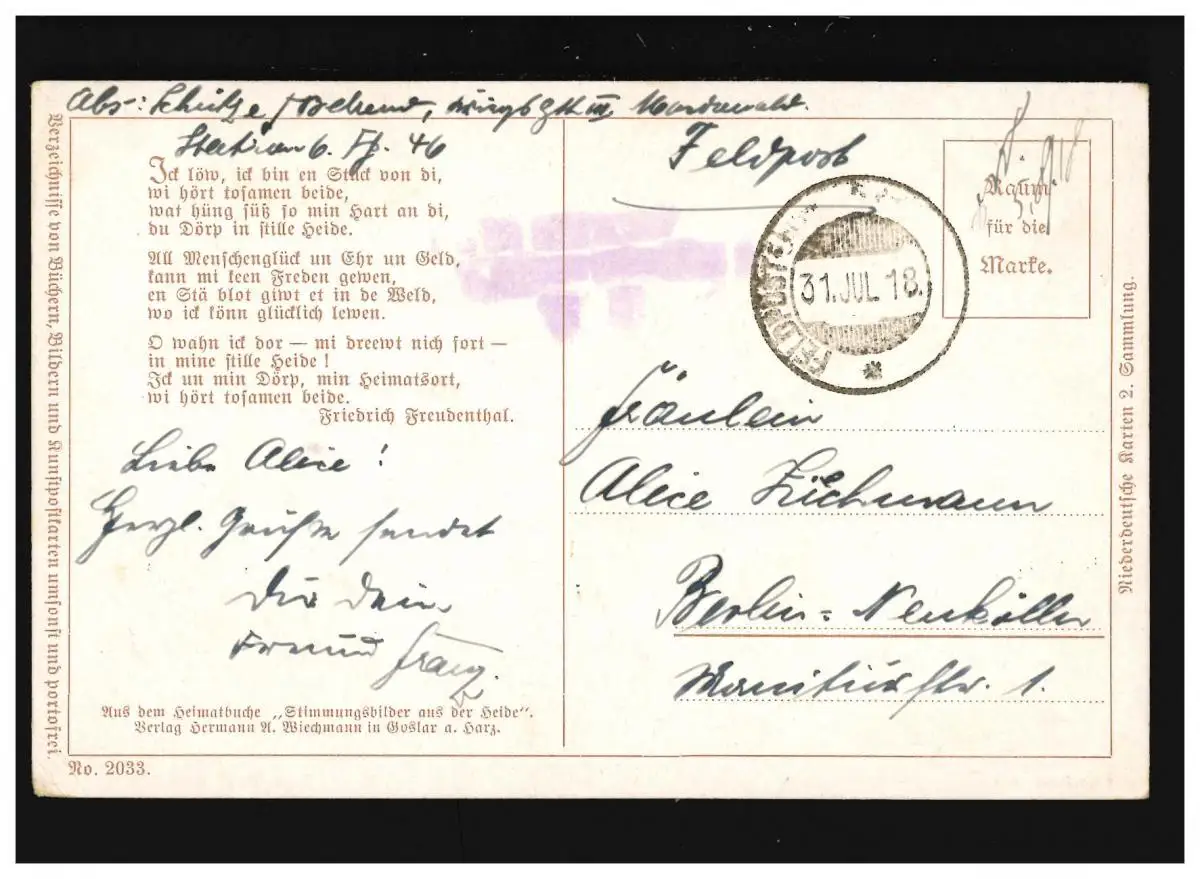 Abs: Schütze
Station 6. Fp. 46
Feldpost
Ick löw, ick bin en Stück von di,
wi hört tosamen beide,
wat hüng süß so min Hart an di,
du Dörp in stille Heide.
All Menschenglück un Ehr un Geld,
kann mi keen Freden gewen,
en Stä blot giwt et in de Weld,
wo ick könn glücklich lewen.
O wahn ick dor — mi dreewt nich fort —
in mine stille Heide!
Ick un min Dörp, min Heimatsort,
wi hört tosamen beide.
Friedrich Freudenthal.
Liebe Alice!
Herzl. Grüße sendet
Dir Dein
Freund Franz.
Aus dem Heimatbuche „Stimmungsbilder aus der Heide".
Verlag Hermann A. Wiechmann in Goslar a. Harz.
No. 2033.
Verzeichnisse von Büchern, Bildern und Kunstpostkarten umsonst und portofrei.
31. JUL 18.
Raum
für die
Marke.
Fräulein
Alice
Berlin-Neukölln
str. 1.
Niederdeutsche Karten 2. Sammlung.